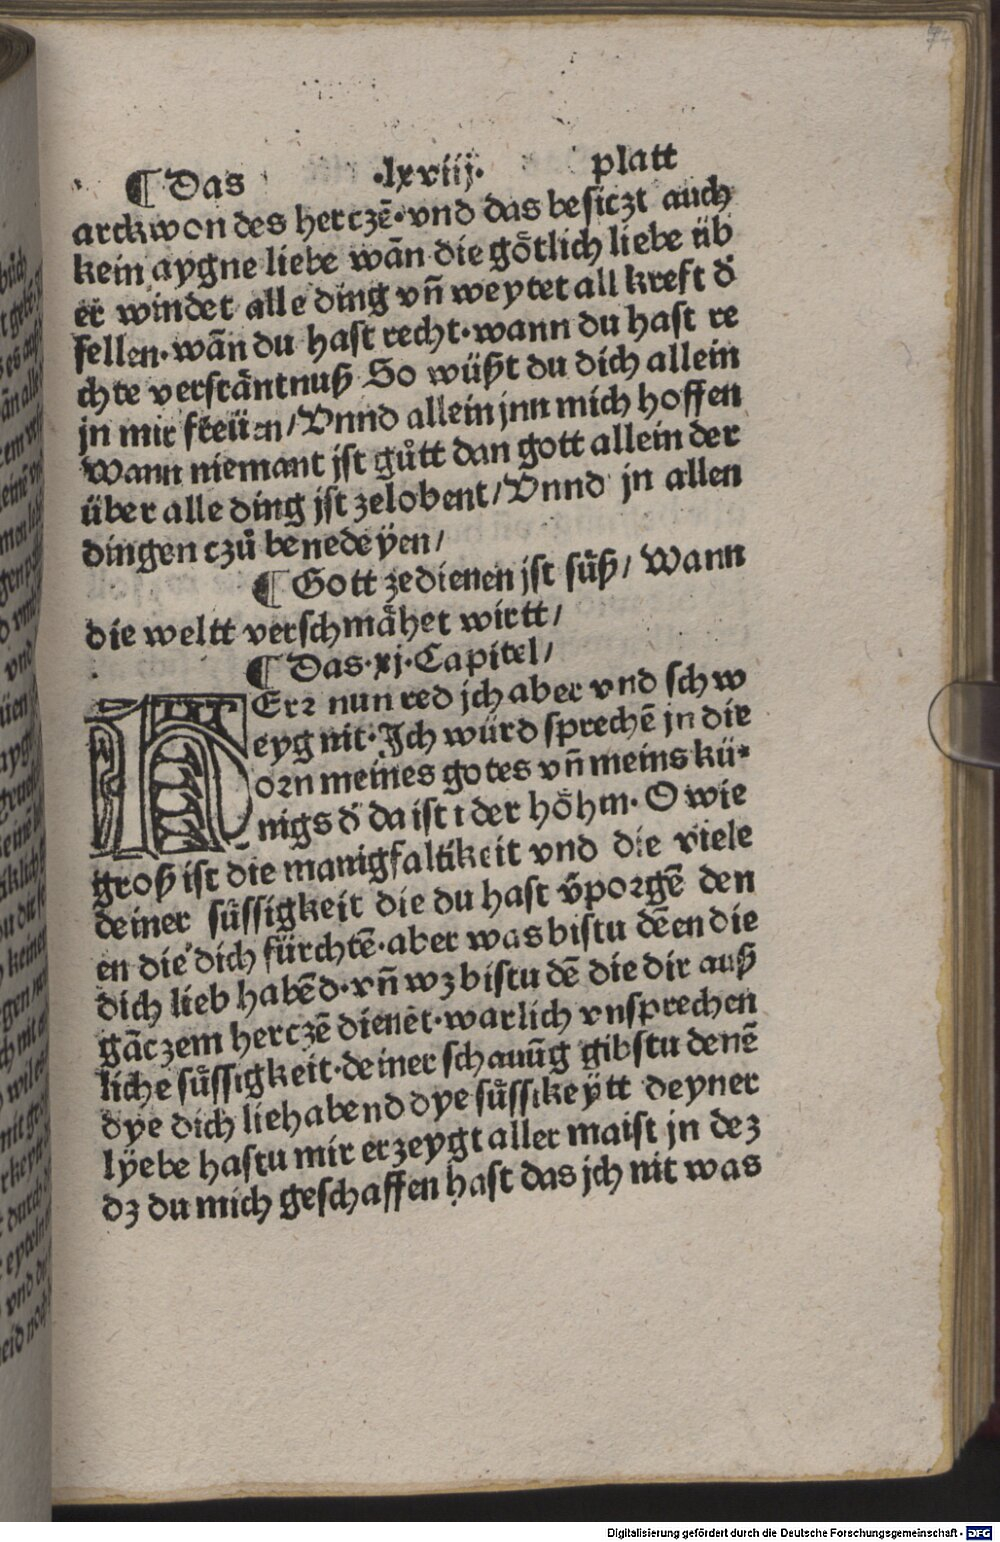 ¶ Das ·lxviij· platt
arckwon des herczē· vnd das besiczt auch
kein aygne liebe wān die gȫtlich liebe üb
er windet alle ding vn̄ weytet all kreft d̄
sellen· wān du hast recht· wann du hast re
chte verstāntnuß So wüßt du dich allein
jn mir freüen / Vnnd allein jnn mich hoffen
Wann niemant jst gůtt dan gott allein der
über alle ding jst zelobent / Vnnd jn allen
dingen czů benedeyen /
¶ Gott zedienen jst süß / Wann
die weltt verschmähet wirtt /
¶ Das·xj·Capitel /
HErꝛ nun red jch aber vnd schw
eyg nit· Jch würd sprechē jn die
oꝛn meines gotes vn̄ meins kü-
nigs d̄ da ist ı der höhin· O wie
groß ist die manigfaltikeit vnd die viele
deiner süssigkeit die du hast v̄poꝛgē den
en die dich fürchtē· aber was bistu dēen die
dich lieb habēd· vn̄ wz bistu dē die dir auß
gāczem herczē dienēt· warlich vnsprechen
liche süssigkeit· deiner schauūg gibstu denē
dye dich liehabend dye süssikeÿtt deyner
lÿebe hastu mir erzeygt aller maist jn dez
dz du mich geschaffen hast das jch nit was
Digitalisierung gefördert durch die Deutsche Forschungsgemeinschaft - DFG